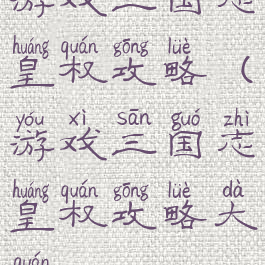 游戏三国志
huáng quán gōng lüè
皇权攻略（
yóu xì sān guó zhì
游戏三国志
huáng quán gōng lüè dà
皇权攻略大
quán